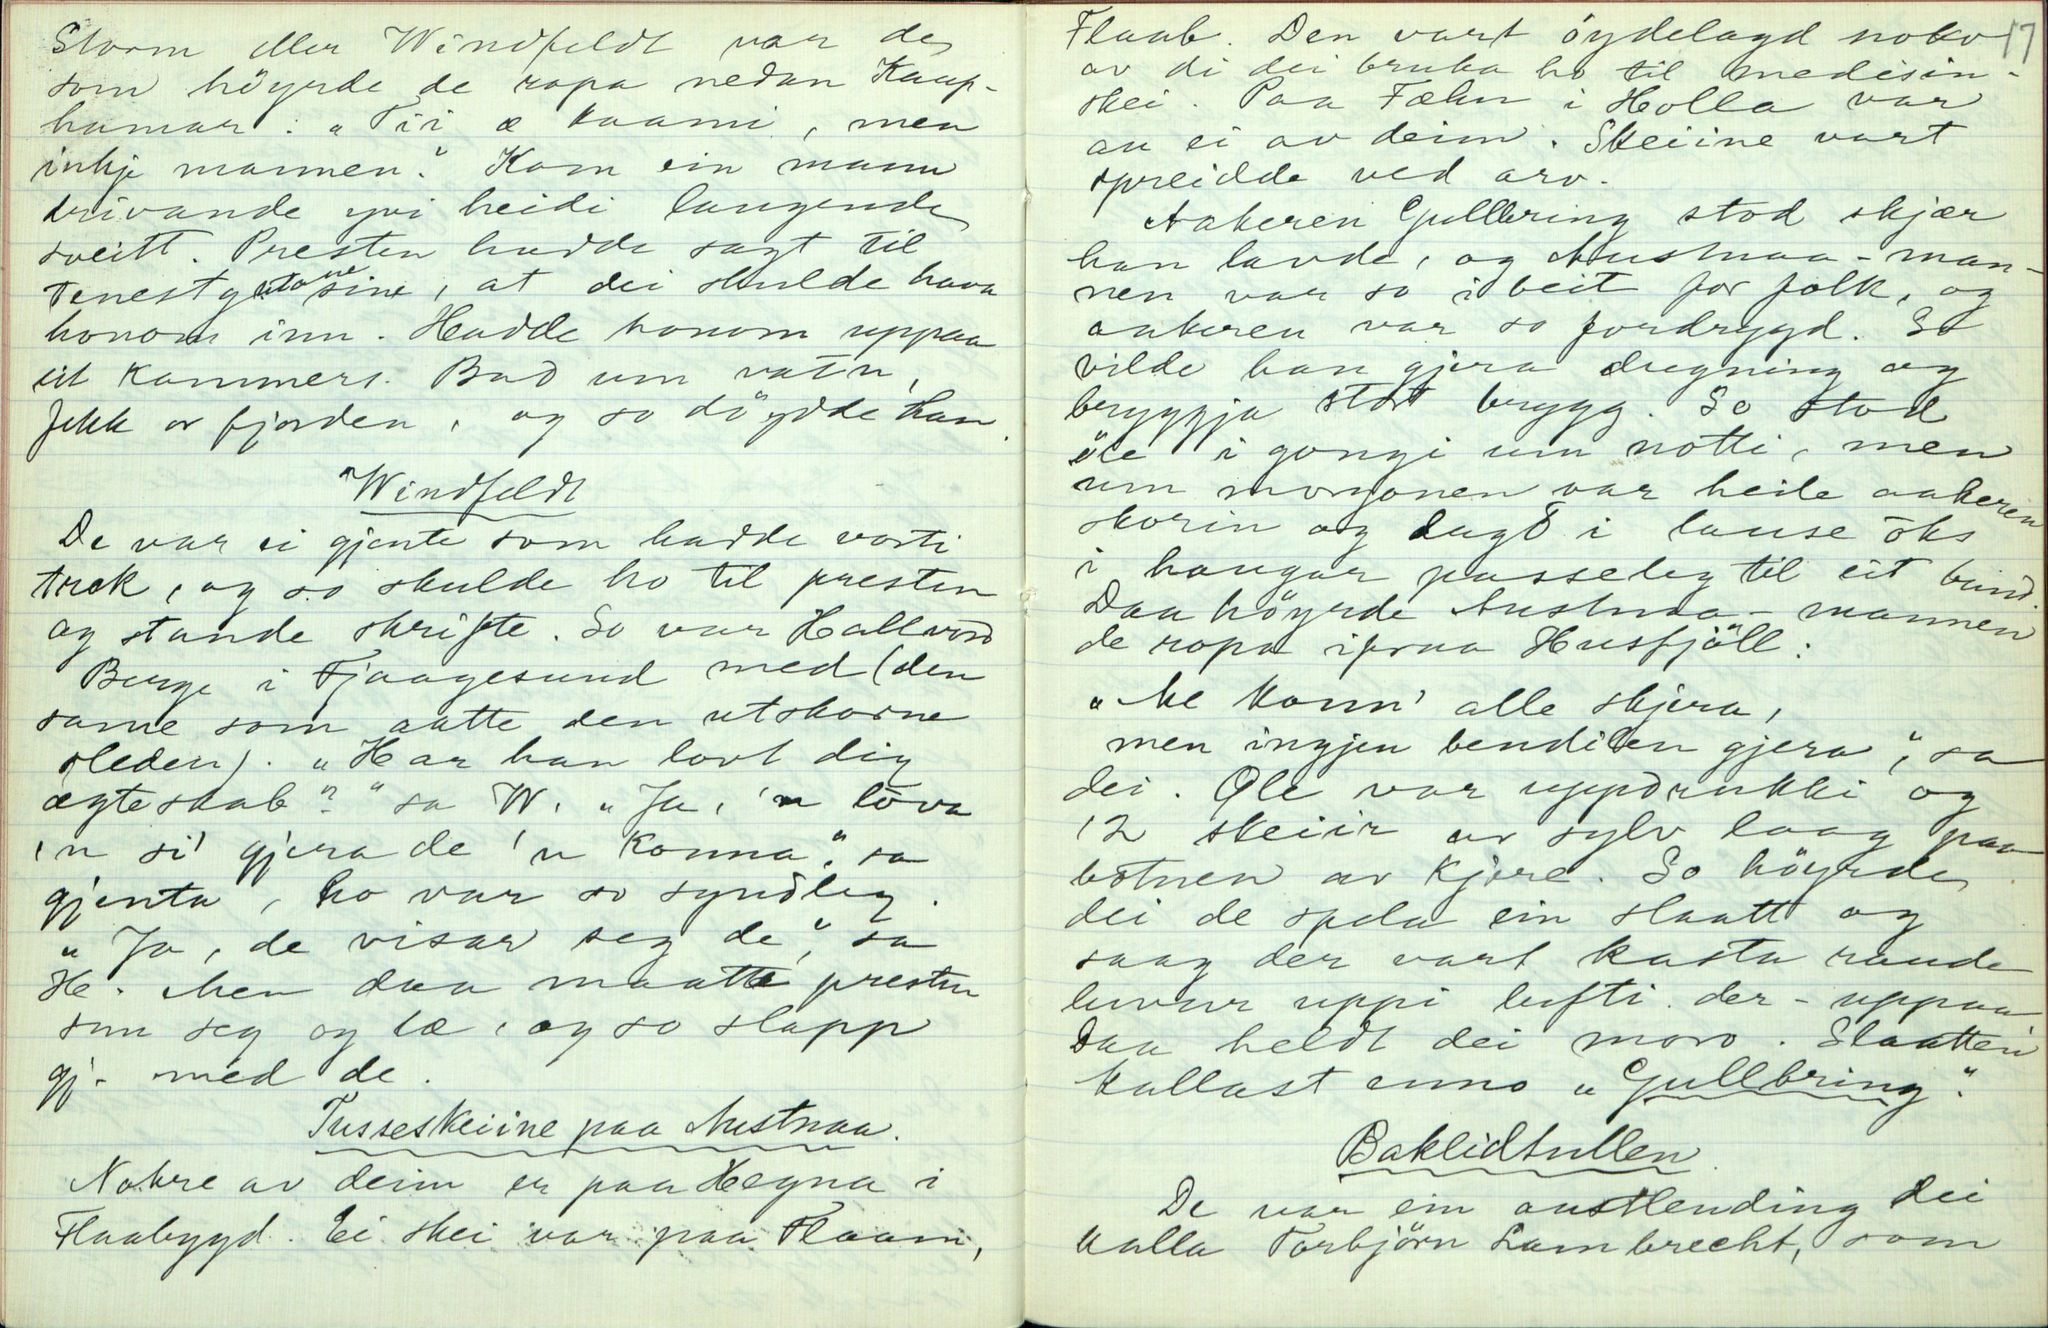 Storm eller Windfeldt var de
som höyrde de ropa nedan Kaup-
hamar: "Tii æ kaami, men
inkje mannen." Kom ein mann
drivande yvi heidi laugende
sveitt. Presten hadde sagt til
tenestgutane sine, at dei skulde hava
honom inn. Hadde honom uppaa
eit kammers. Bad um vatn,
fekk or fjorden, og so döydde han.
Windfeldt
De var ei gjente som hadde vorti
trok, og so skulde ho til presten
og stande skrifte. So var Hallvord
Berge i Fjaagesund med (den
same som aatte den utskorne
sleden). "Har han lovt dig
ægteskab?" sa W. "Ja, 'n lova
'n si' gjera de 'n konna", sa
gjenta, ho var so syndleg.
"Ja, de visar seg de", sa
H. Men daa maatte presten
snu seg og læ, og so slapp
gj. med de.
Tusseskeiine paa Austnaa.
Nokre av deim er paa Hegna i
Flaabygd. Ei skei var paa Flaam,
17
Flaab. Den vart öydelagd noko
av di dei bruka ho til medisin-
skei. Paa Fæhn i Holla var
au ei av deim. Skeiine vart
spreidde ved arv.
Aakeren Gullbring stod skjær
han lavde, og Austnaa-man-
nen var so i beit for folk, og
aakeren var so fordrygd. So
vilde han gjera dugning og
bryggja stort brygg. So stod
öle i gongi um notti, men
um morgonen var heile aakeren
skorin og lagd i lause öks
i haugar passeleg til eit bund.
Daa höyrde Austnaa-mannen
de ropa ifraa Husfjöll:
"Me konn' alle skjera,
men ingjen bendilen gjera", sa
dei. Öle var uppdrukki og
12 skeiir av sylv laag paa
botnen av kjere. So höyrde
dei de spela ein slaatt og
saag der vart kasta raude
luvur uppi lufti der-uppaa.
Daa heldt dei moro. Slaatten
kallast enno "Gullbring".
Baklidtullen
De var ein austlending dei
kalla Torbjörn Lambrecht, som